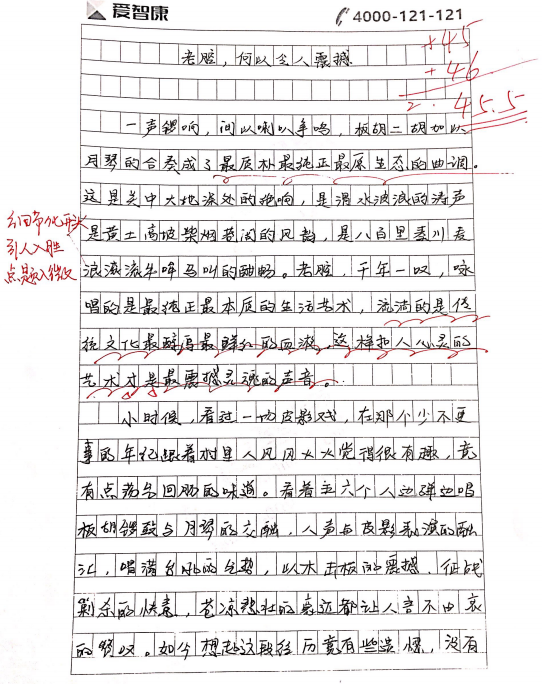 爱智康
4000-121-121
+45
+46
2. 45.5
老腔，何以令人震撼
一声锣响，间以唢以争鸣，板胡二胡加以
月琴的合奏成了最质朴最纯正最原生态的曲调。
这是关中大地深处的绝响，是渭水波浪的涛声
是黄土高坡柴烟巷闾的风韵，是八百里秦川麦
浪滚滚牛哞马叫的酣畅。老腔，千年一叹，咏
唱的是最纯正最本质的生活艺术，流淌的是传
统文化最醇厚最鲜红的血液，这样扣人心灵的
艺术才是最震撼灵魂的声音。
细节化开头
引人入胜
点题入微
小时候，看过一场皮影戏，在那个少不更
事的年纪跟着村里人风风火火觉得很有趣，竟
有点荡气回肠的味道。看着五六个人边弹边唱
板胡锣鼓与月琴的交融，人声与皮影表演的融
汇，唱满台吼的气势，以木击板的震撼，征战
剿杀的快意，苍凉悲壮的意都让人言不由衷
的赞叹。如今想起这段经历竟有些遗憾，没有